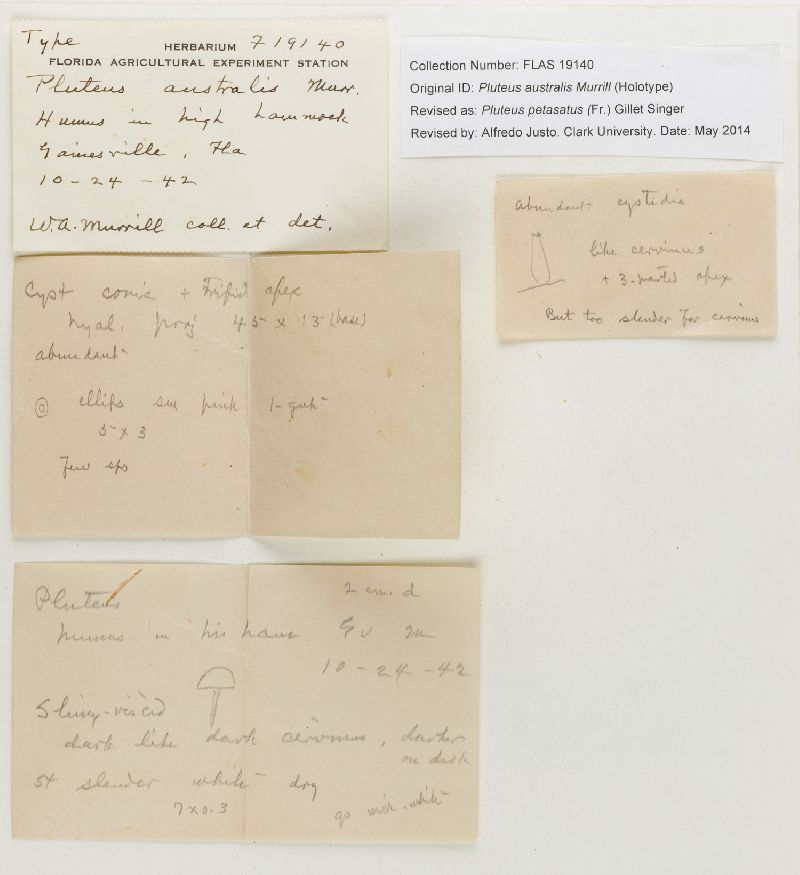 Type
HERBARIUM 7 19140
FLORIDA AGRICULTURAL EXPERIMENT STATION
Pluteus australis Murr.
Humus in high hammock
Gainesville, Fla
10-24-42
W.A. Murrill coll. et det.
Collection Number: FLAS 19140
Original ID: Pluteus australis Murrill (Holotype)
Revised as: Pluteus petasatus (Fr.) Gillet Singer
Revised by: Alfredo Justo. Clark University. Date: May 2014
abundant cystidia
like cervinus
+ 3-parted apex
But too slender for cervinus
Cyst conic + Trifid apex
hyal. proj 45 x 15 (base)
abundant
ellips sm pink 1-gutt
5 x 3
Few sps
Pluteus
2 cm. d
humus in hi ham Gv m
10-24-42
Slimy-viscid
dark like dark cervinus, darker
on disk
St slender white dry
7 x 0.3
white